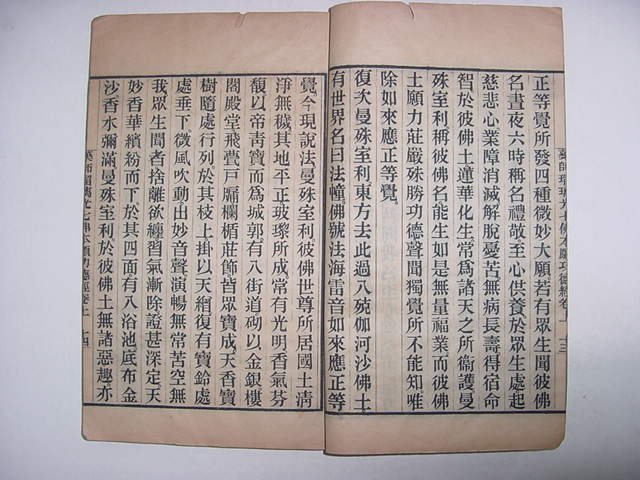 藥師瑠璃光七佛本願功德經卷上 十三
正等覺所發四種微妙大願若有眾生聞彼佛
名晝夜六時稱名禮敬至心供養於眾生處起
慈悲心業障消滅解脫憂苦無病長壽得宿命
智於彼佛土蓮華化生常爲諸天之所衞護曼
殊室利稱彼佛名能生如是無量福業而彼佛
土願力莊嚴殊勝功德聲聞獨覺所不能知唯
除如來應正等覺。
復次曼殊室利東方去此過八殑伽河沙佛土
有世界名曰法幢佛號法海雷音如來應正等
覺今現說法曼殊室利彼佛世尊所居國土清
淨無穢其地平正玻瓈所成常有光明香氣芬
馥以帝靑寶而爲城郭有八街道砌以金銀樓
閣殿堂飛甍戶牖欄楯莊飾皆眾寶成天香寶
樹隨處行列於其枝上掛以天繒復有寶鈴處
處垂下微風吹動出妙音聲演暢無常苦空無
我眾生聞者捨離欲纏習氣漸除證甚深定天
妙香華繽紛而下於其四面有八浴池底布金
沙香水彌滿曼殊室利於彼佛土無諸惡趣亦
藥師瑠璃光七佛本願功德經卷上 十四